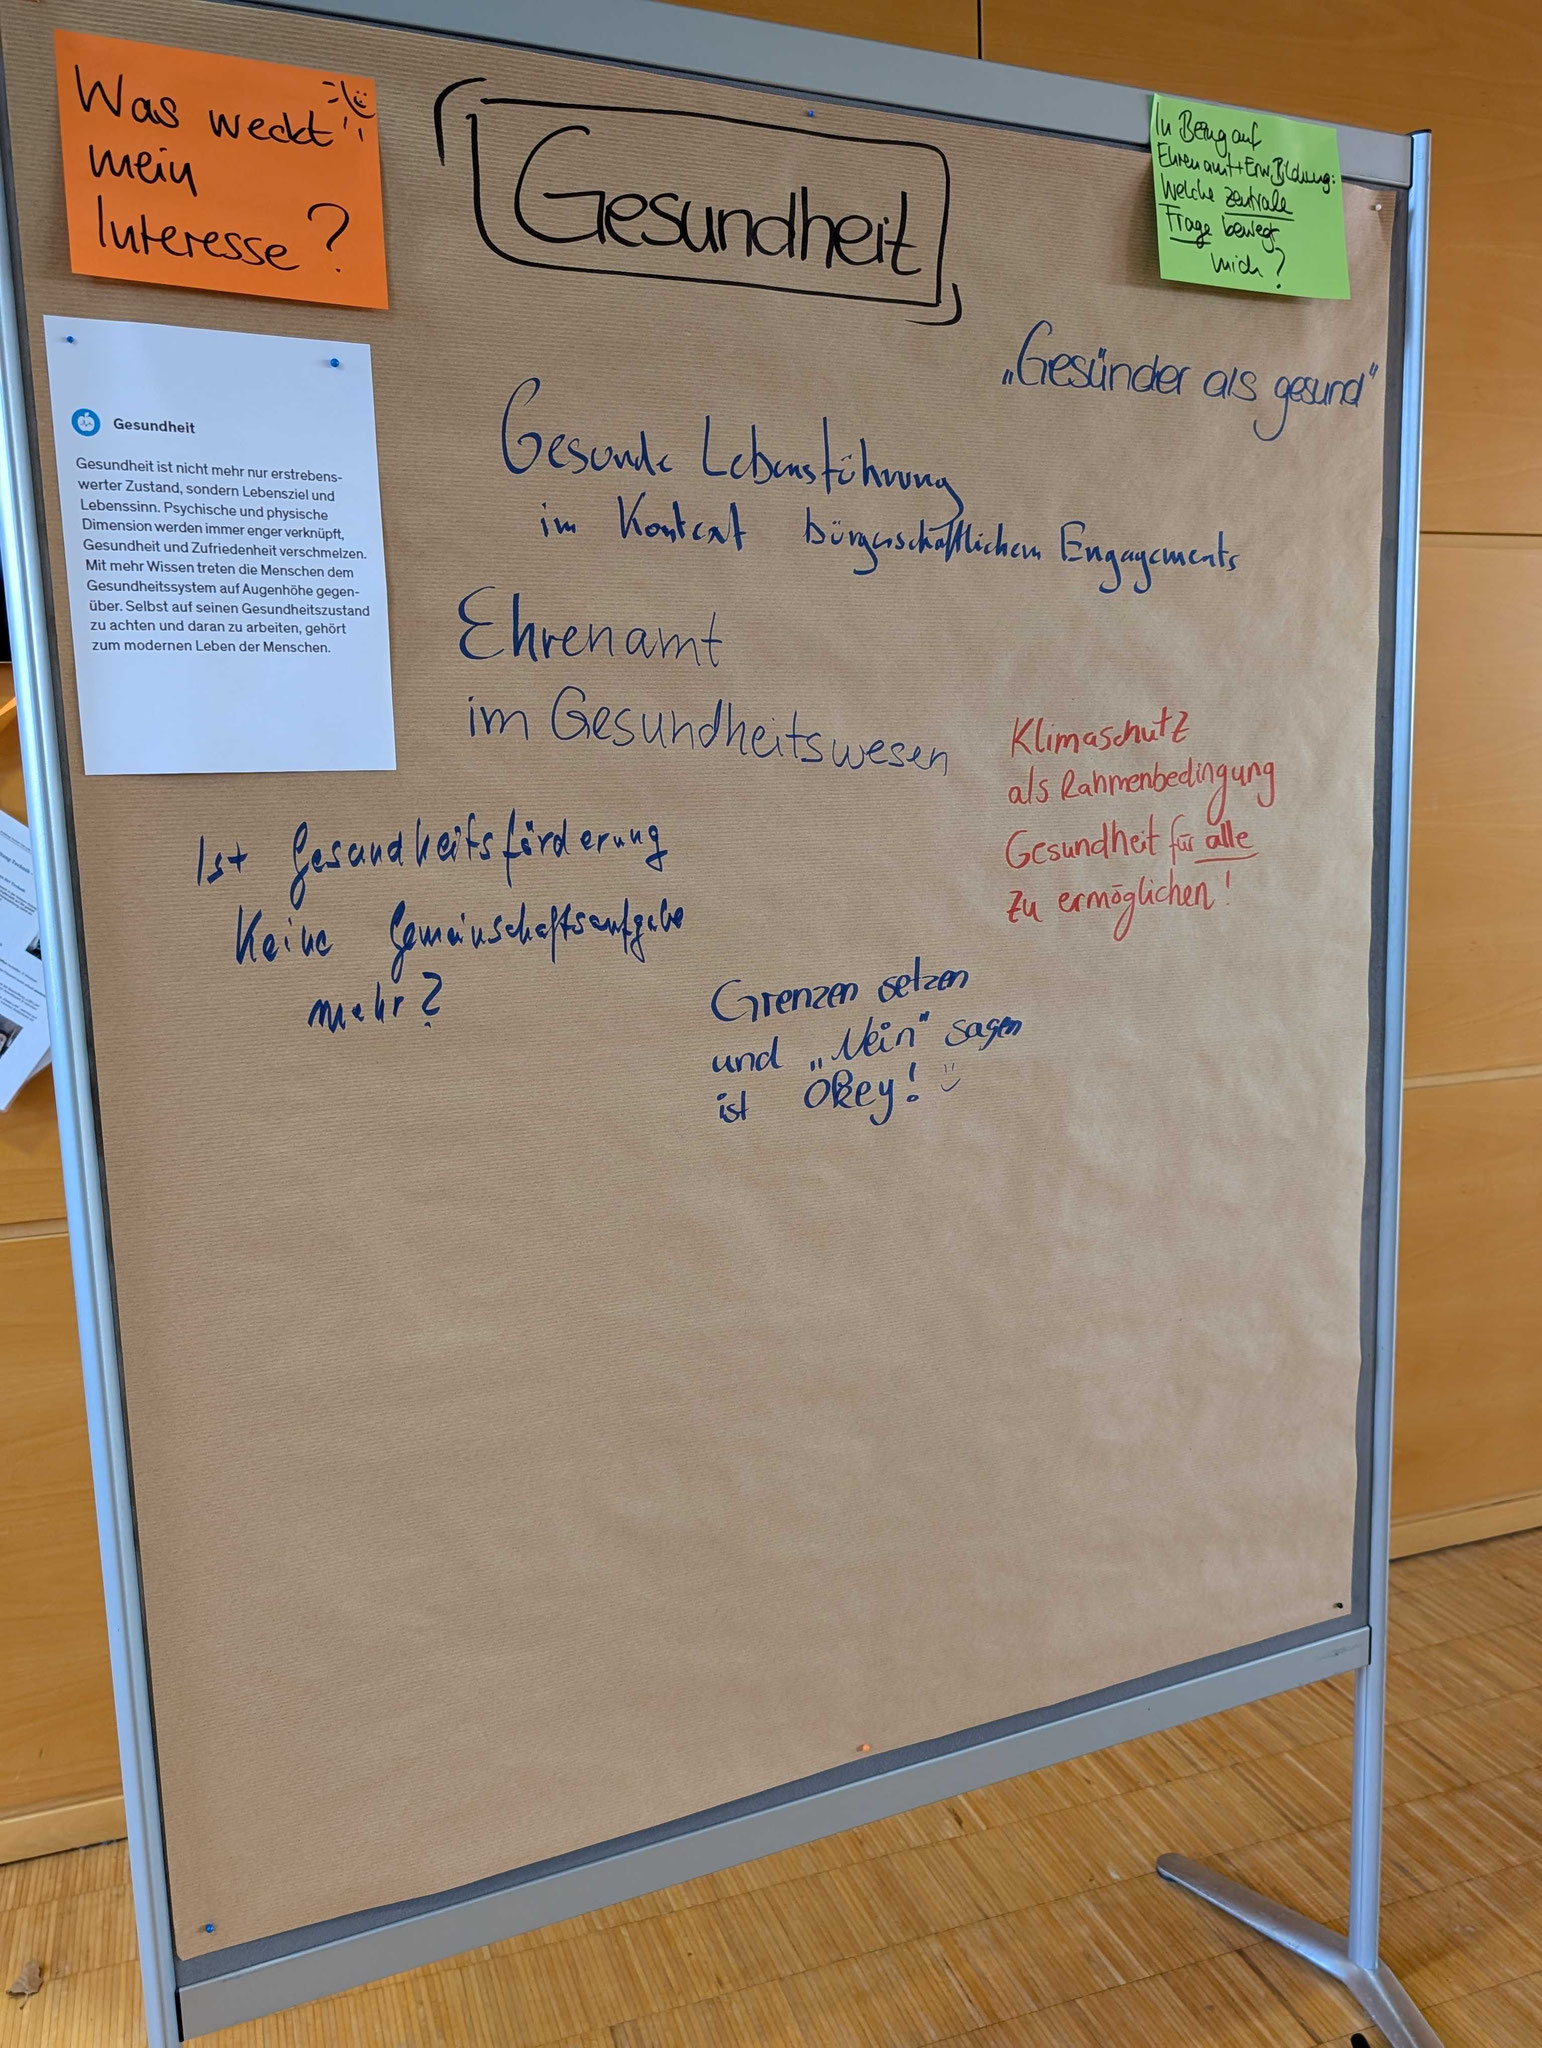 Was weckt
mein
Interesse?
Gesundheit
In Bezug auf
Ehrenamt + Erw.Bildung:
Welche zentrale
Frage bewegt
mich?
Gesundheit
Gesundheit ist nicht mehr nur erstrebens-
werter Zustand, sondern Lebensziel und
Lebenssinn. Psychische und physische
Dimension werden immer enger verknüpft,
Gesundheit und Zufriedenheit verschmelzen.
Mit mehr Wissen treten die Menschen dem
Gesundheitssystem auf Augenhöhe gegen-
über. Selbst auf seinen Gesundheitszustand
zu achten und daran zu arbeiten, gehört
zum modernen Leben der Menschen.
„Gesünder als gesund“
Gesunde Lebensführung
im Kontext bürgerschaftlichem Engagements
Ehrenamt
im Gesundheitswesen
Klimaschutz
als Rahmenbedingung
Gesundheit für alle
zu ermöglichen!
Ist Gesundheitsförderung
Keine Gemeinschaftsaufgabe
mehr?
Grenzen setzen
und „Nein“ sagen
ist Okey!